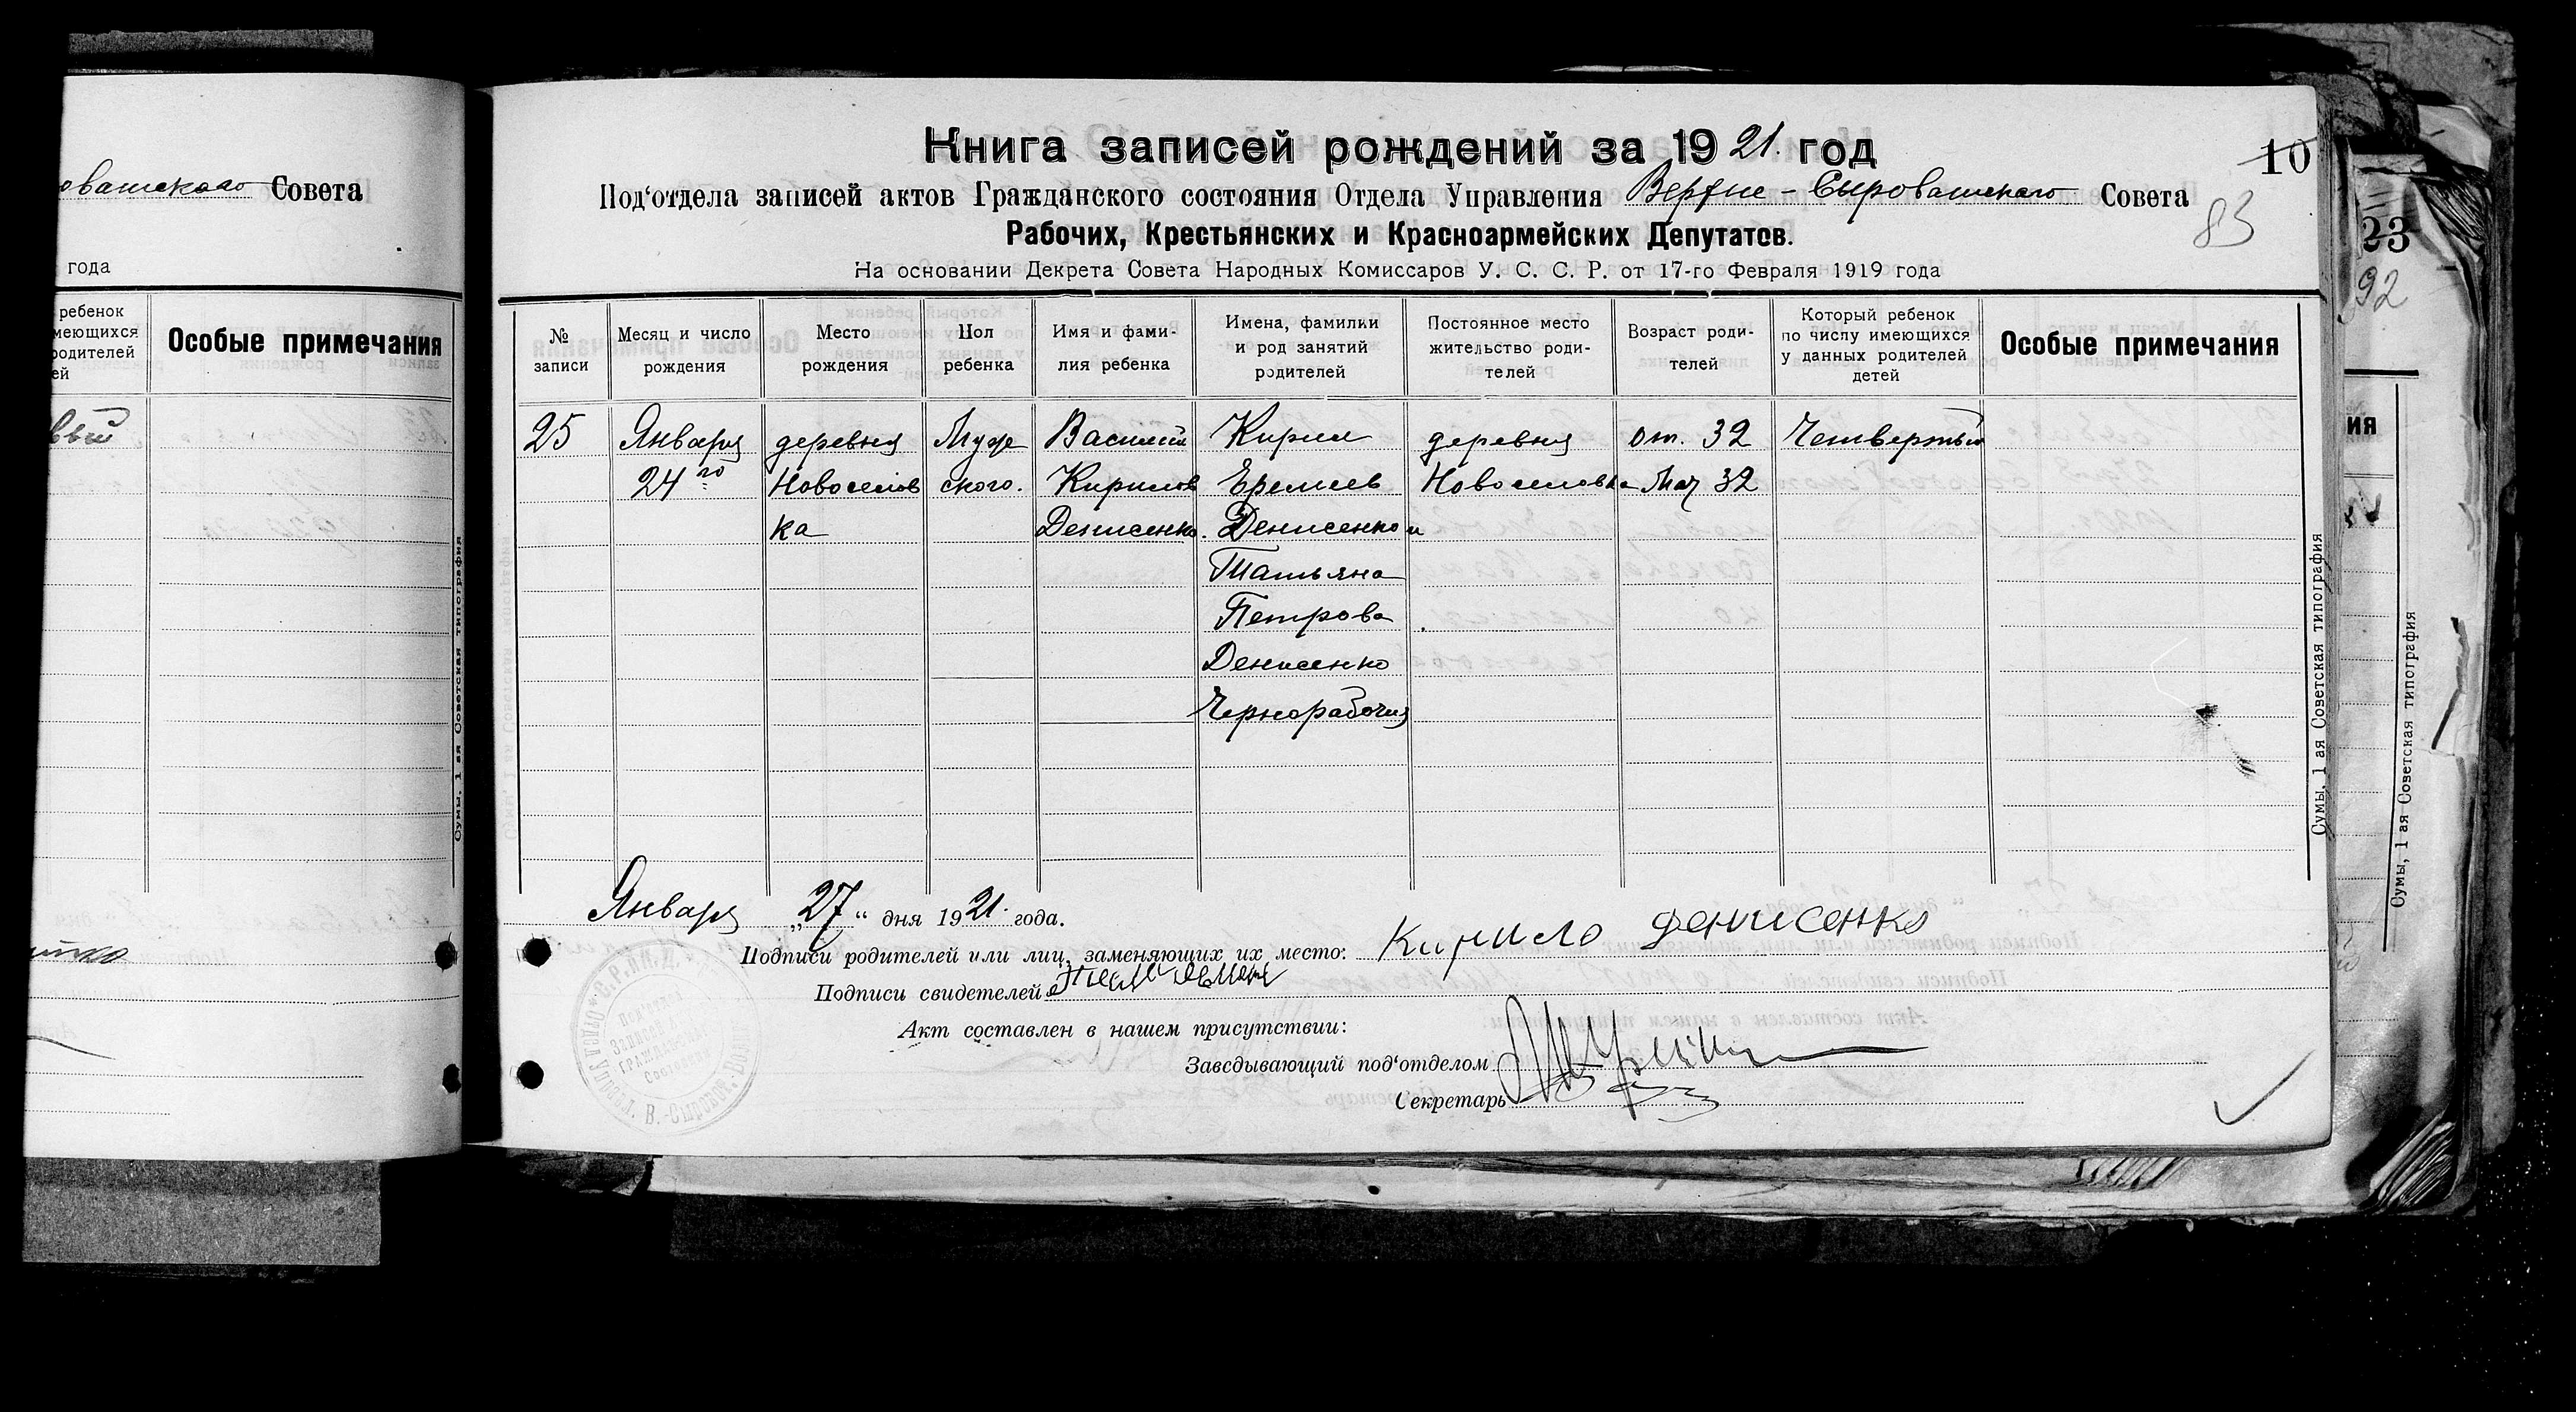 овашского Совета
года
ребенок
меющихся
родителей
ей
Особые примечания
вый
Сумы, 1 ая Советская типография
Книга записей рождений за 1921. год
10
Под‘отдела записей актов Гражданского состояния Отдела Управления Верхне-Сыроватского Совета
83
Рабочих, Крестьянских и Красноармейских Депутатов.
На основании Декрета Совета Народных Комиссаров У. С. С. Р. от 17-го Февраля 1919 года
№ записи
Месяц и число рождения
Место рождения
Пол ребенка
Имя и фами-
лия ребенка
Имена, фамилии
и род занятий
родителей
Постоянное место
жительство роди-
телей
Возраст роди-
телей
Который ребенок
по числу имеющихся
у данных родителей
детей
Особые примечания
25 Января деревня Муже Василий Кирил деревня от. 32 Четвертый
24го Новоселов ского. Кирилов Еремеев Новоселовка Мат 32
ка Денисенко. Денисенко и
Татьяна
Петрова
Денисенко
Чернорабочия
Января „27“ дня 1921. года.
Подписи родителей или лиц, заменяющих их место: Кирило Денисенко
Подписи свидетелей
Акт составлен в нашем присутствии:
Заведывающий под‘отделом
Секретарь
Сумы, 1 ая Советская типография
23
92
ия
Сумы, 1 ая Советская типография